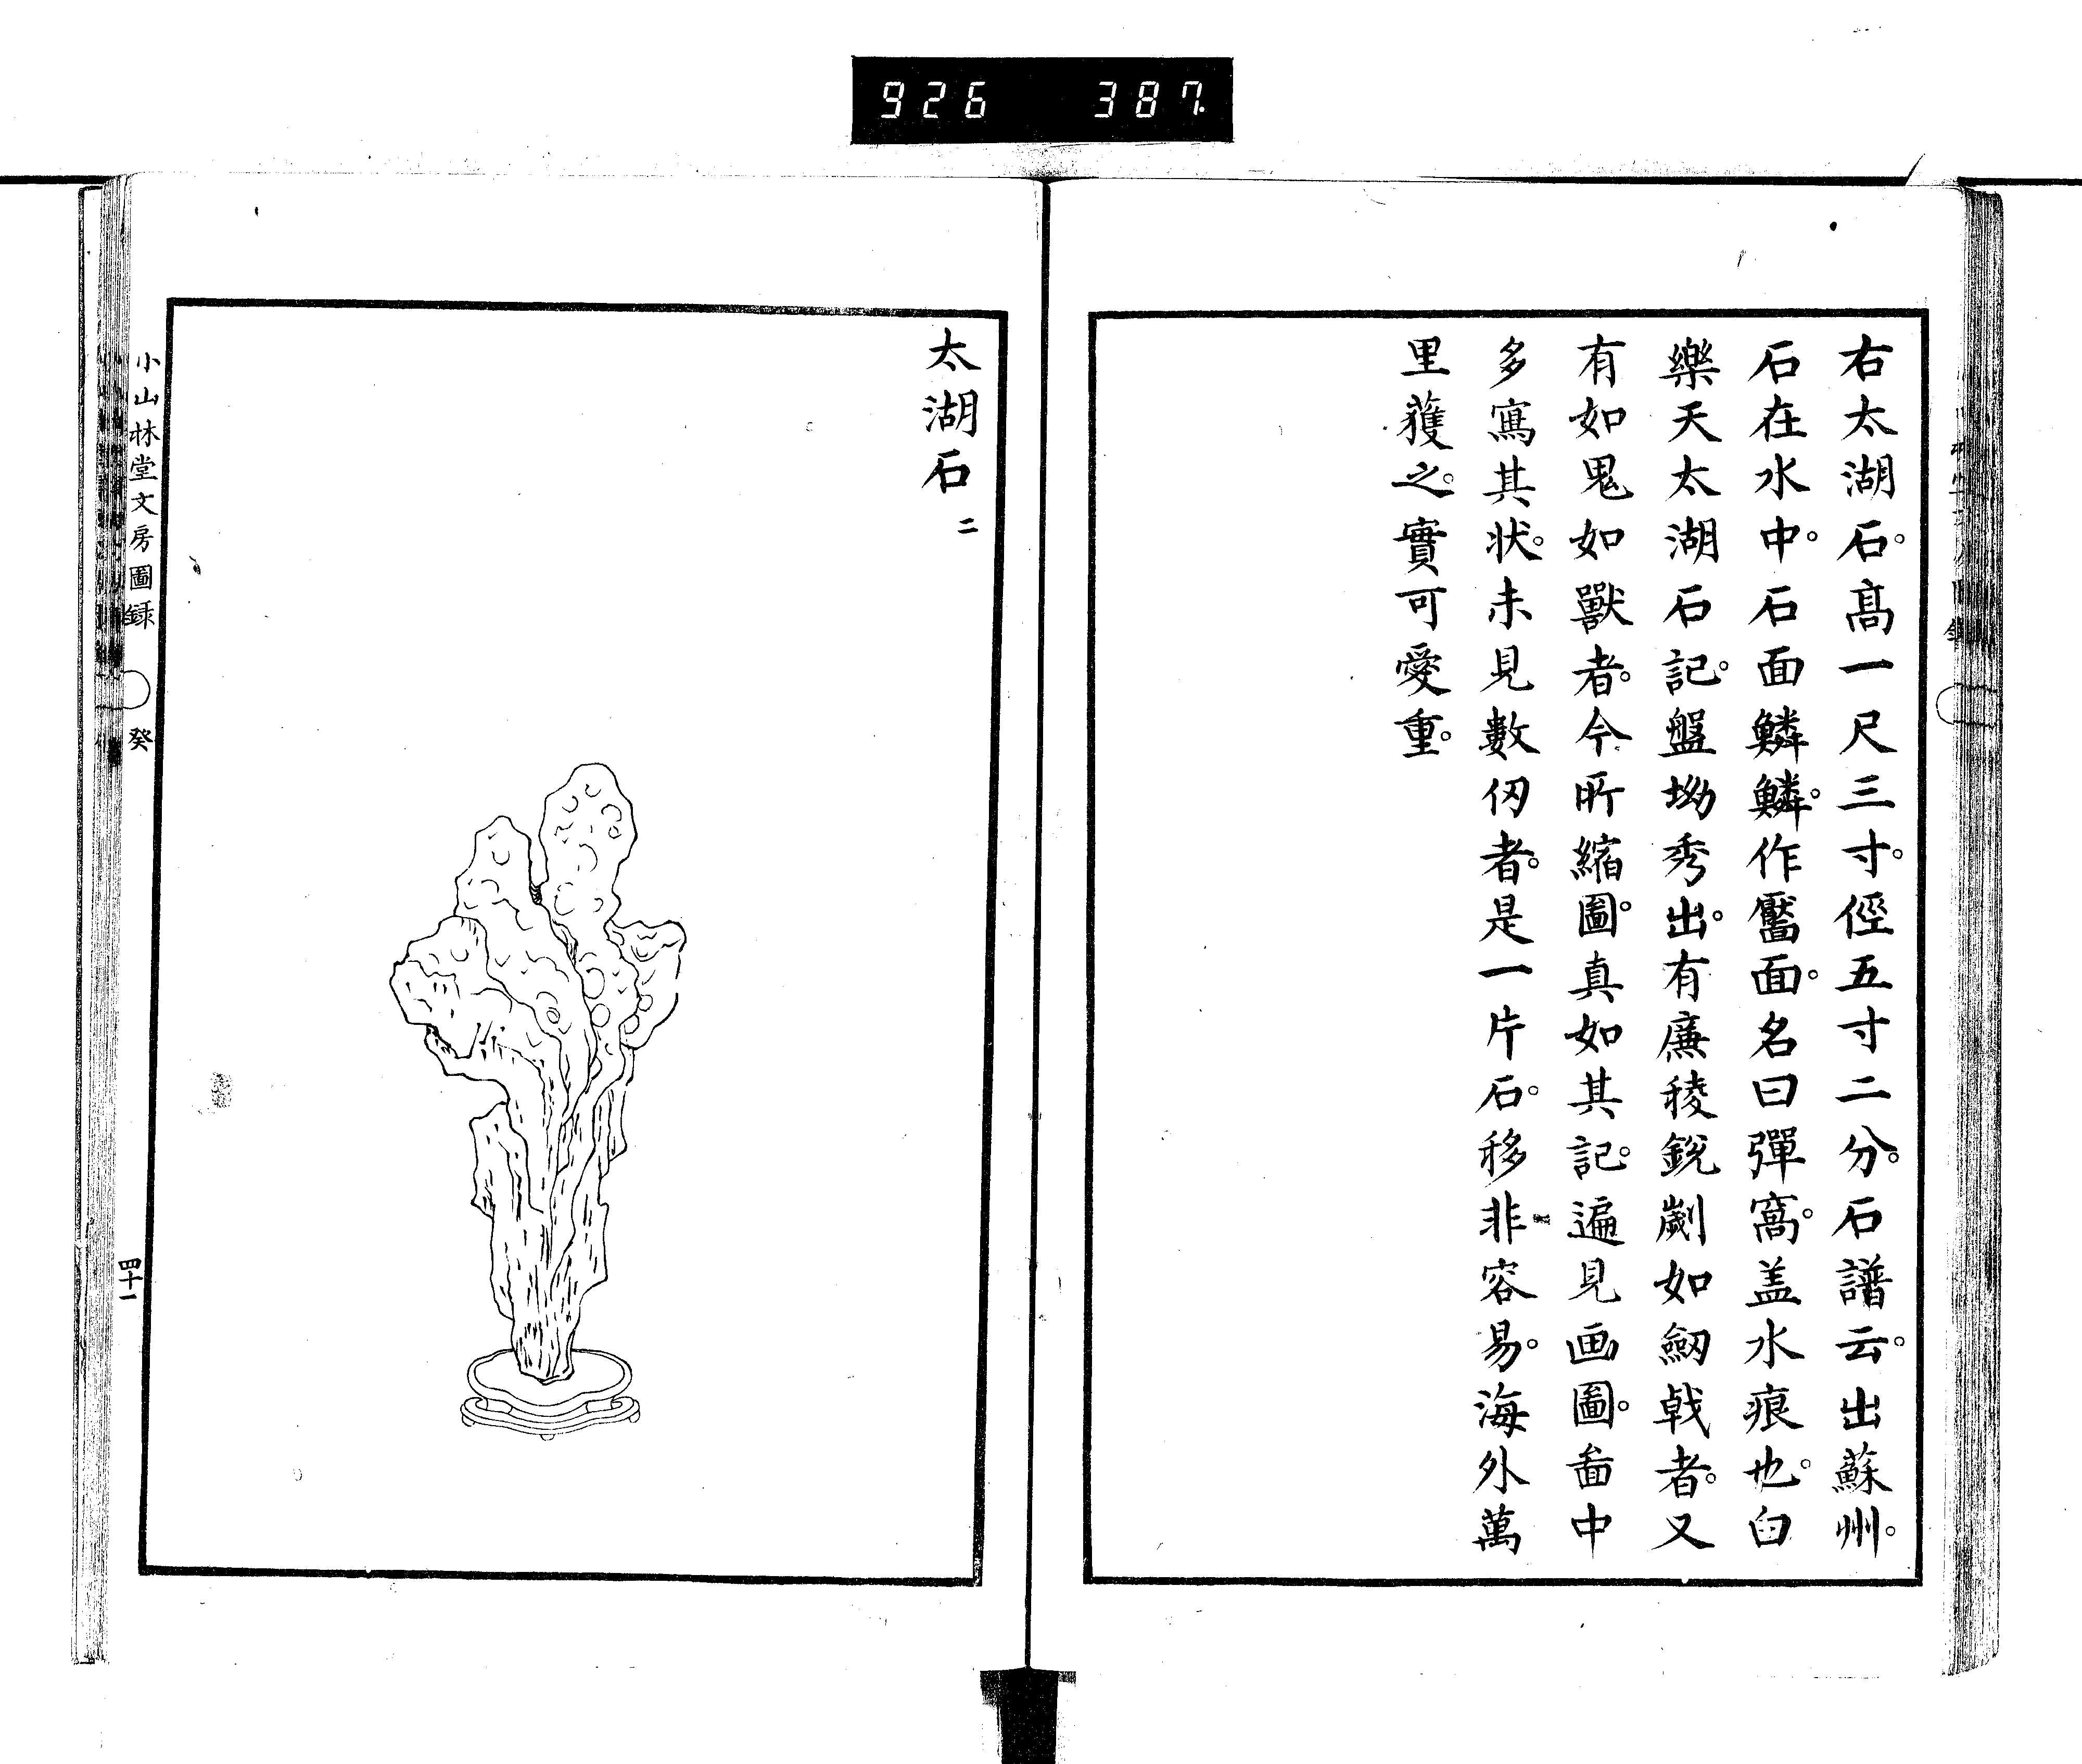 926 387
右太湖石。高一尺三寸。徑五寸二分。石譜云。出蘇州。
石在水中。石面鱗鱗。作靨面。名曰彈窩。盖水痕也。白
樂天太湖石記。盤坳秀出。有廉稜銳劌如劒戟者。又
有如鬼如獸者。今所縮圖。真如其記。遍見画圖。畫中
多寫其狀。未見數仭者。是一片石。移非容易。海外萬
里獲之。實可愛重。
太湖石 二
小山林堂文房圖録 癸 四十一